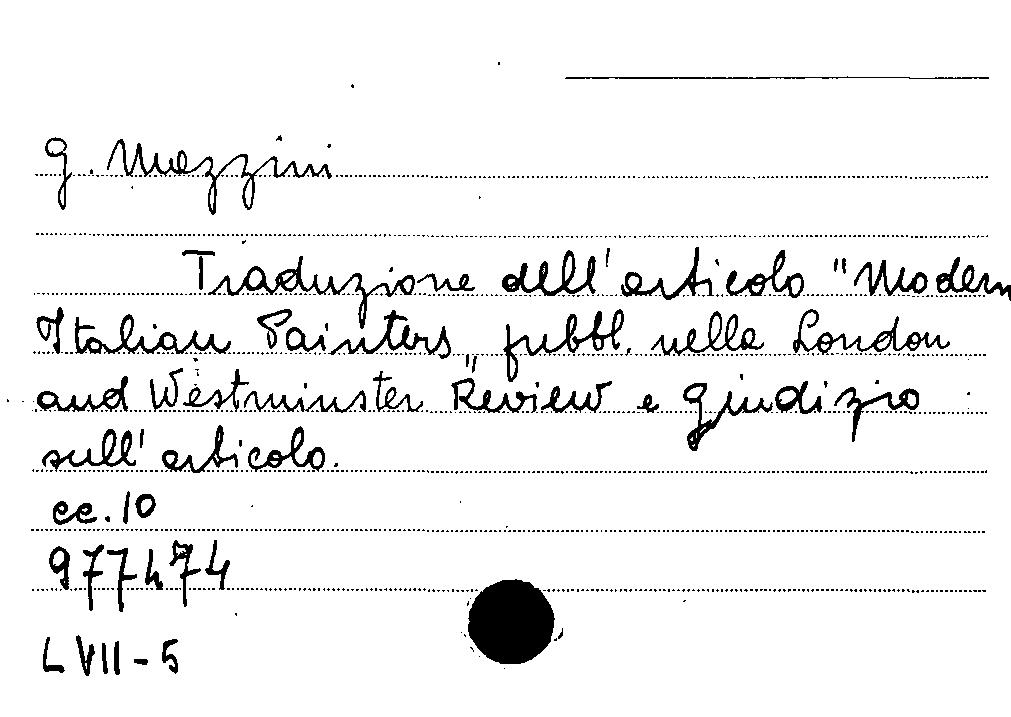 G. Mazzini
Traduzione dell'articolo "Modern
Italian Painters" pubbl. nella London
and Westminster Review e giudizio
sull'articolo.
cc. 10
977474
LVII-5